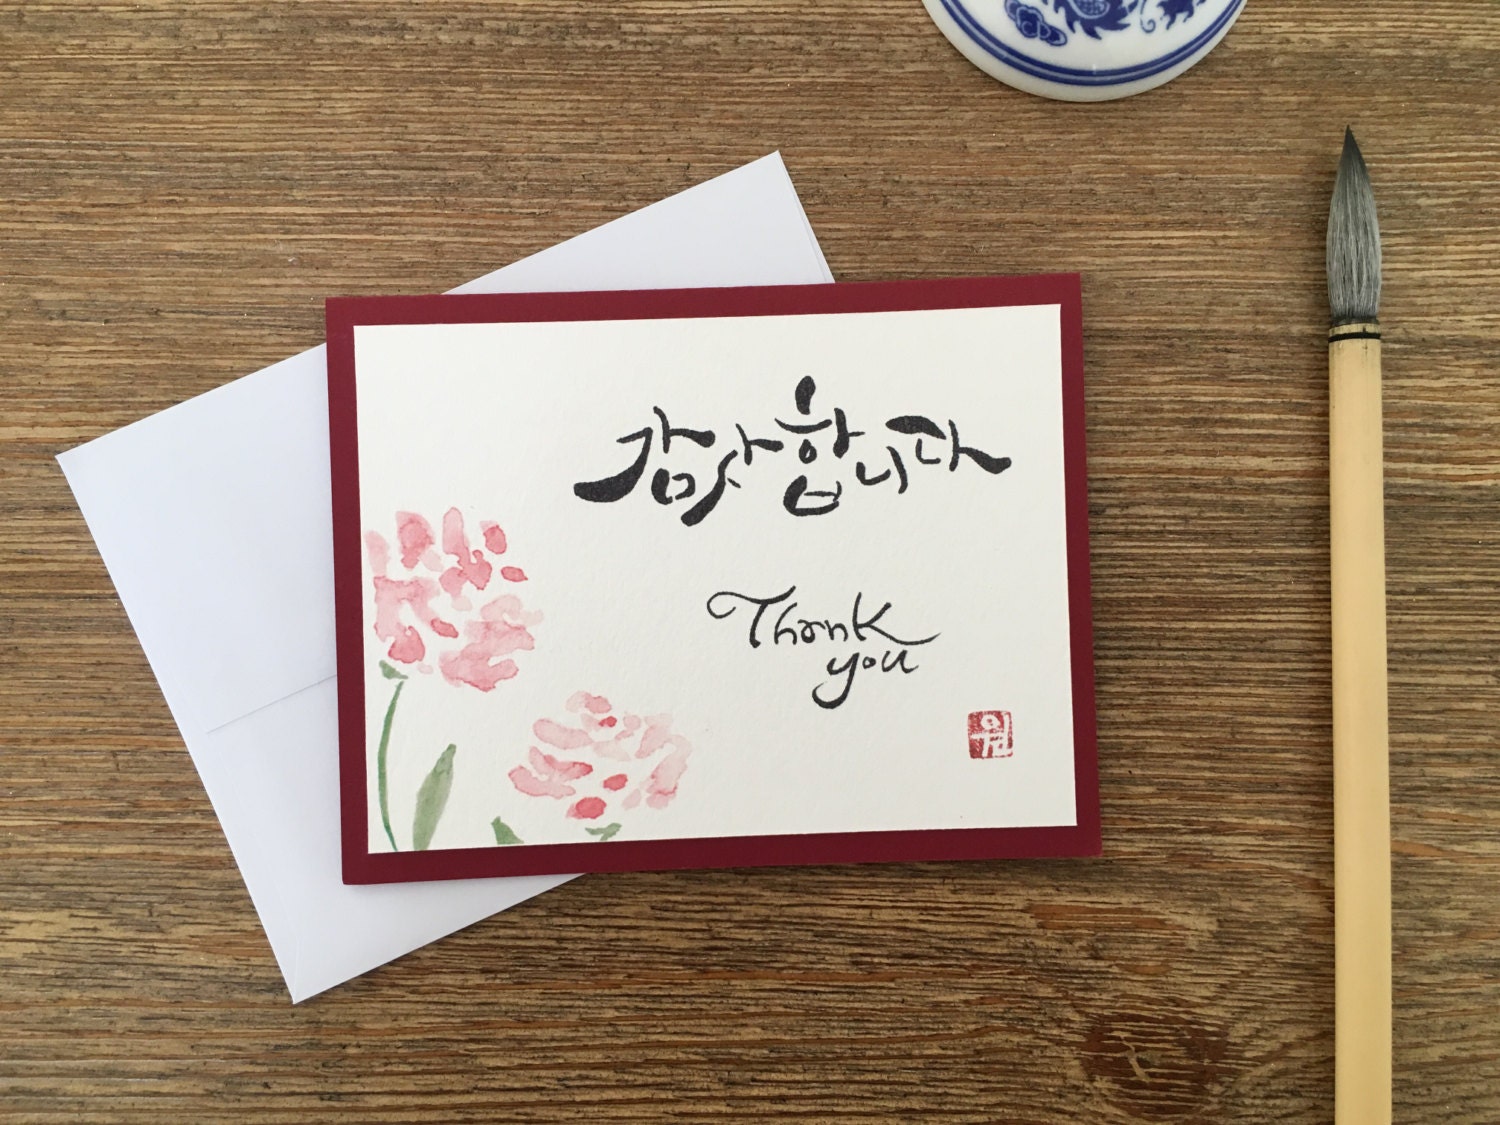 감사합니다
Thank
you
원